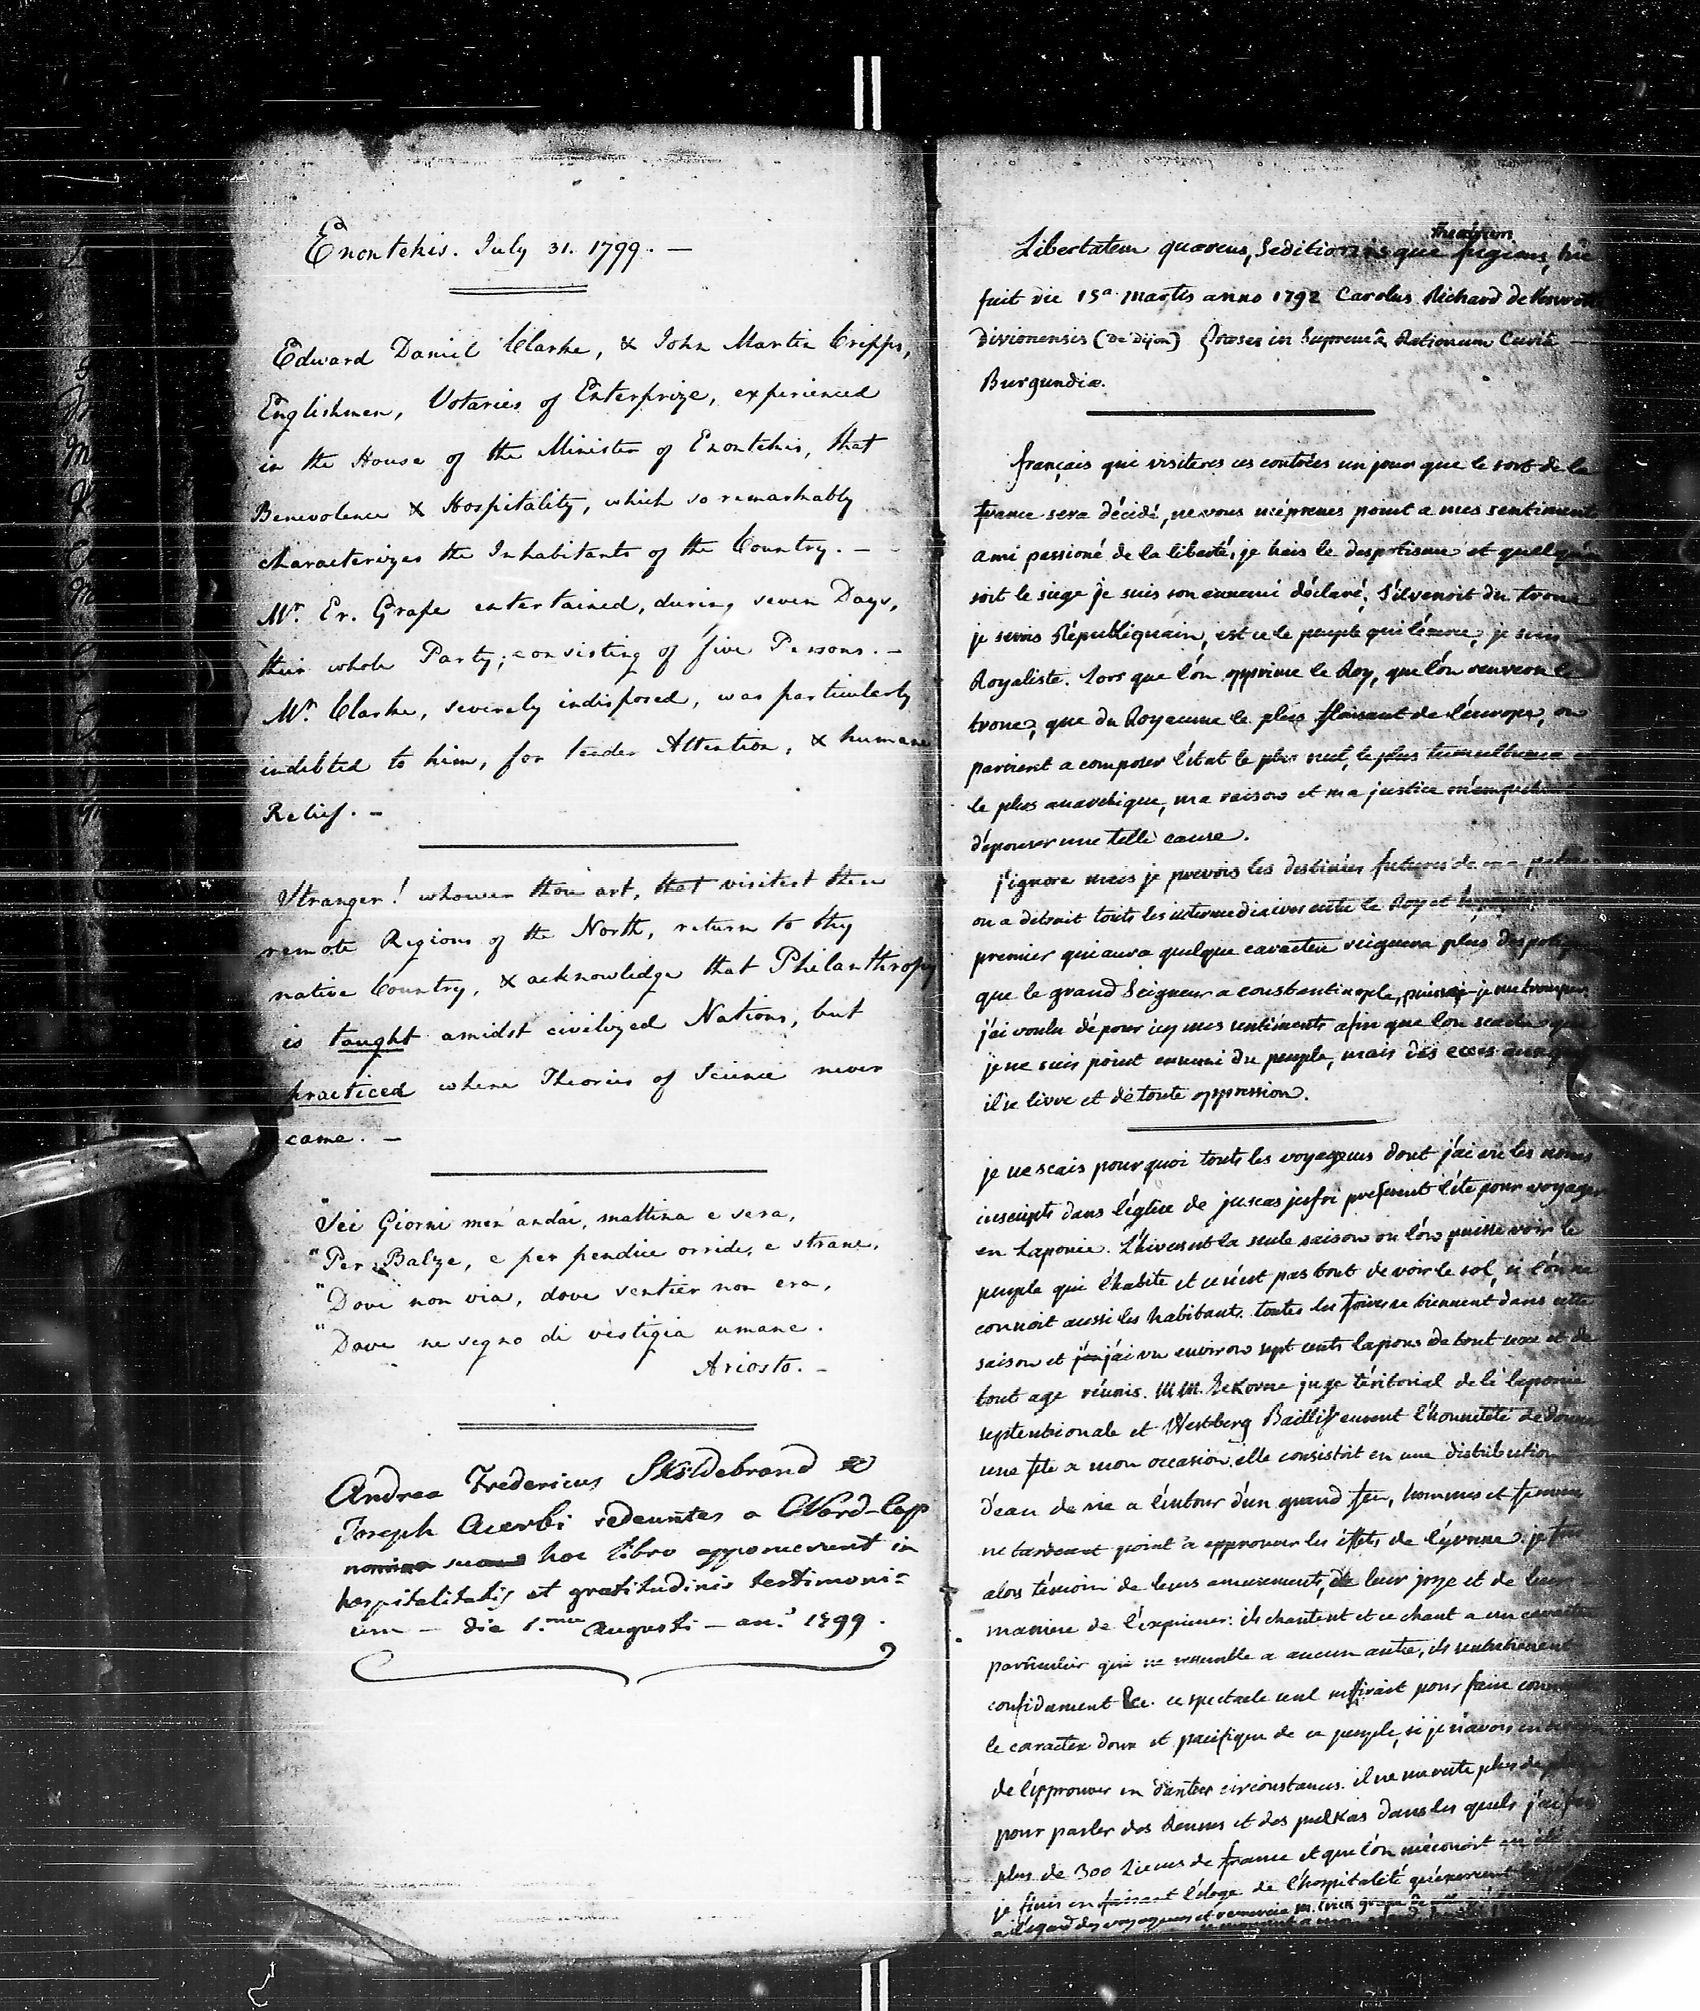 Enontekis. July 31. 1799. —
Edward Daniel Clarke, & John Martin Cripps,
Englishmen, Votaries of Enterprize, experienced
in the House of the Minister of Enontekis, that
Benevolence & Hospitality, which so remarkably
characterizes the Inhabitants of the Country. —
Mr. Er. Grape entertained, during seven Days,
their whole Party; consisting of five Persons. —
Mr. Clarke, severely indisposed, was particularly
indebted to him, for tender Attention, & humane
Relief. —
Stranger! whoever thou art, that visitest these
remote Regions of the North, return to thy
native Country, & acknowledge that Philanthropy
is taught amidst civilized Nations, but
practiced where Theories of Science never
came. —
"Sei Giorni men' andai, mattina e sera,
"Per Balze, e per pendice orride, e strane,
"Dove non via, dove sentier non era,
"Dove ne segno di vestigia umane.
Ariosto. —
Andrea Fredericus Skjöldebrand &
Joseph Acerbi redeuntes a Nord-Cap
nomina sua hoc libro apposuerunt in
hospitalitatis et gratitudinis testimoni=
um — die 1.ma Augusti — an.o 1799.
theatrum
Libertatem quærens, Seditionisque fugiens, hic
fuit die 15a martis anno 1792 Carolus Richard de
divionensis (de dijon) in Supremâ Rationum Curiâ
Burgundiæ.
français qui visiteres ces contrées un jour que le sort de la
france sera décidé, ne vous méprenes point a mes sentiment
ami passioné de la liberté, je hais le despotisme et quelqu'en
soit le siege je suis son ennemi déclaré; S'il venoit du trone
je serois Républiquain, est ce le peuple qui l'exerce, je suis
Royaliste. Lors que l'on opprime le Roy, que l'on renverse le
trone, que du Royaume le plus florisant de l'europe, on
parvient a composer l'état le plus nul, le plus tumultueux
le plus anarchique, ma raison et ma justice m'empechent
d'épouser une telle cause.
j'ignore mais je prevois les destinées futures de ma
on a détruit touts les intermediaires entre le Roy et le
premier qui aura quelque caractere reignera plus
que le grand Seigneur a constantinople, puissai-je me tromper.
j'ai voulu déposer icy mes sentiments afin que l'on scache que
je ne suis point ennemi du peuple, mais des exces
il se livre et de toute oppression.
je ne scais pourquoi touts les voyageurs dont j'ai vu les noms
inscripts dans l'église de juscas jerfvi preferent l'été pour voyager
en Laponie. L'hiver est la seule saison ou l'on puisse voir le
peuple qui l'habite et ce n'est pas tout de voir le sol, si l'on ne
connoit aussi les habitants. toutes les foires se tiennent dans cette
saison et j'ai vu environ sept cents lapons de tout sexe et de
tout age réunis. MM. Ekorne juge téritorial de la laponie
septentrionale et Westberg Baillif eurent l'honnêteté de donner
une fete a mon occasion, elle consistoit en une distribution
d'eau de vie a l'entour d'un grand feu, hommes et femmes
ne tarderent point a epprouver les effets de l'yvresse. je fus
alors témoin de leurs amusements, de leur joye et de leur
maniere de l'exprimer: ils chantent et ce chant a un caractere
particulier qui ne resemble a aucun autre, ils
confidament &c. ce spectacle seul suffirait pour faire
le caractere doux et pacifique de ce peuple, si je n'avois
de l'epprouver en d'autres circonstances. il ne me reste plus de
pour parler des Rennes et des pulkas dans les quels j'ai
plus de 300 Lieues de france et que l'on
je finis en faisant l'éloge de l'hospitalité
a l'égard des voyageurs et remercie M. Erick grape